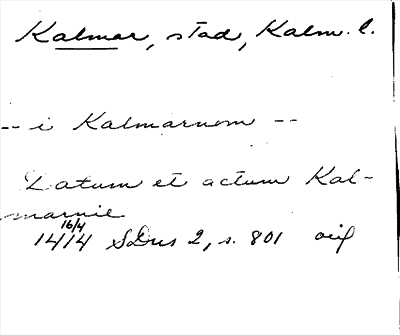 Kalmar, stad, Kalm. l.
-- i Kalmarnom --
Datum et actum Kal-
marnie
16/4
1414 SDns 2, s. 801 orig